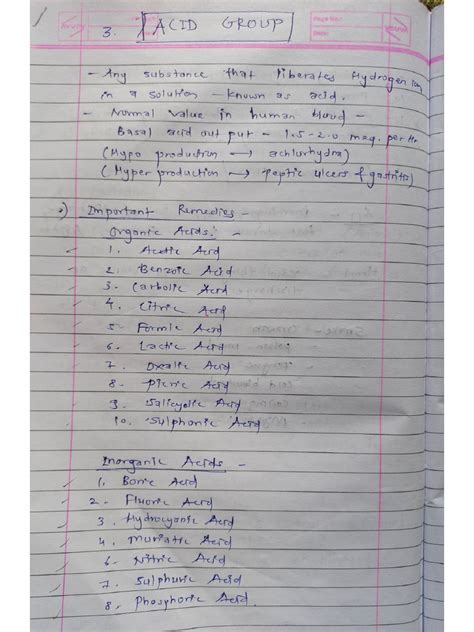 3. ACID GROUP
- Any substance that liberates Hydrogen ion
in a solution - known as acid.
- Normal value in human blood -
Basal acid out put - 1.5-2.0 meq. per Hr
(Hypo production → achlorhydra)
(Hyper production → peptic ulcers & gastritis)
Important Remedies -
Organic Acids: -
1. Acetic Acid
2. Benzoic Acid
3. Carbolic Acid
4. Citric Acid
5. Formic Acid
6. Lactic Acid
7. Oxalic Acid
8. Picric Acid
9. Salicylic Acid
10. Sulphonic Acid
Inorganic Acids -
1. Boric Acid
2. Fluoric Acid
3. Hydrocyanic Acid
4. Muriatic Acid
6. Nitric Acid
7. Sulphuric Acid
8. Phosphoric Acid.